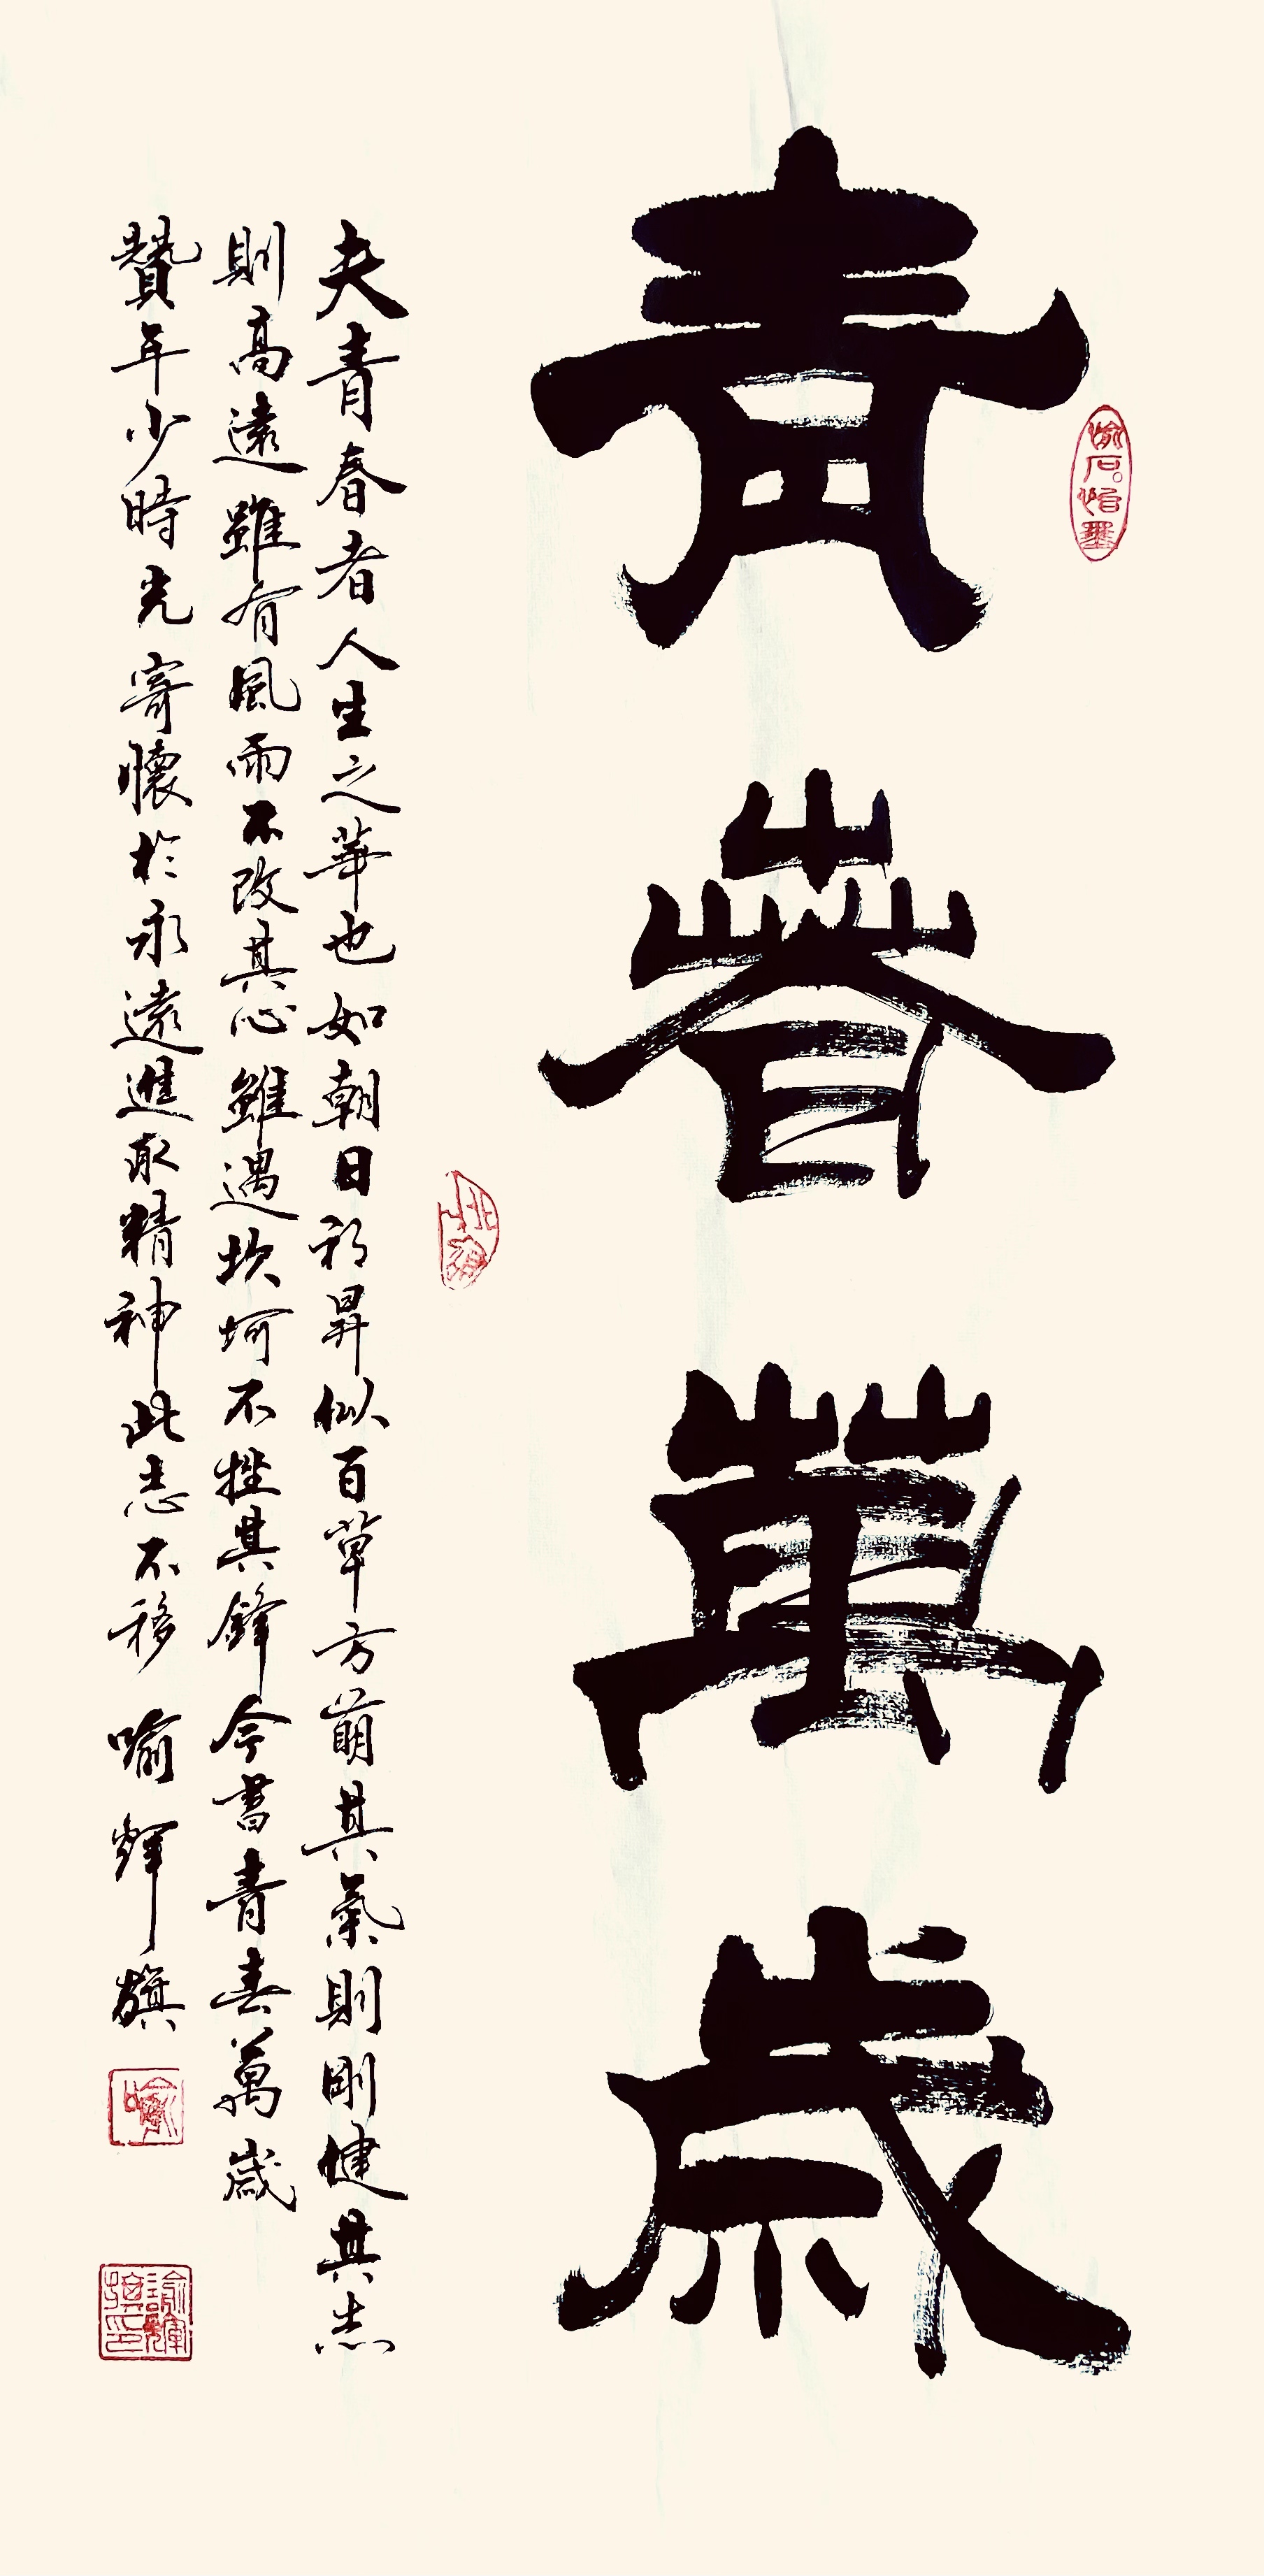 青春萬歲
夫青春者人生之華也如朝日初昇似百草方萌其氣則剛健其志
則高遠雖有風雨不改其心雖遇坎坷不挫其鋒今書青春萬歲
贊年少時光寄懷於永遠進取精神此志不移 喻輝旗
喻石怡墨
喻
喻輝旗印